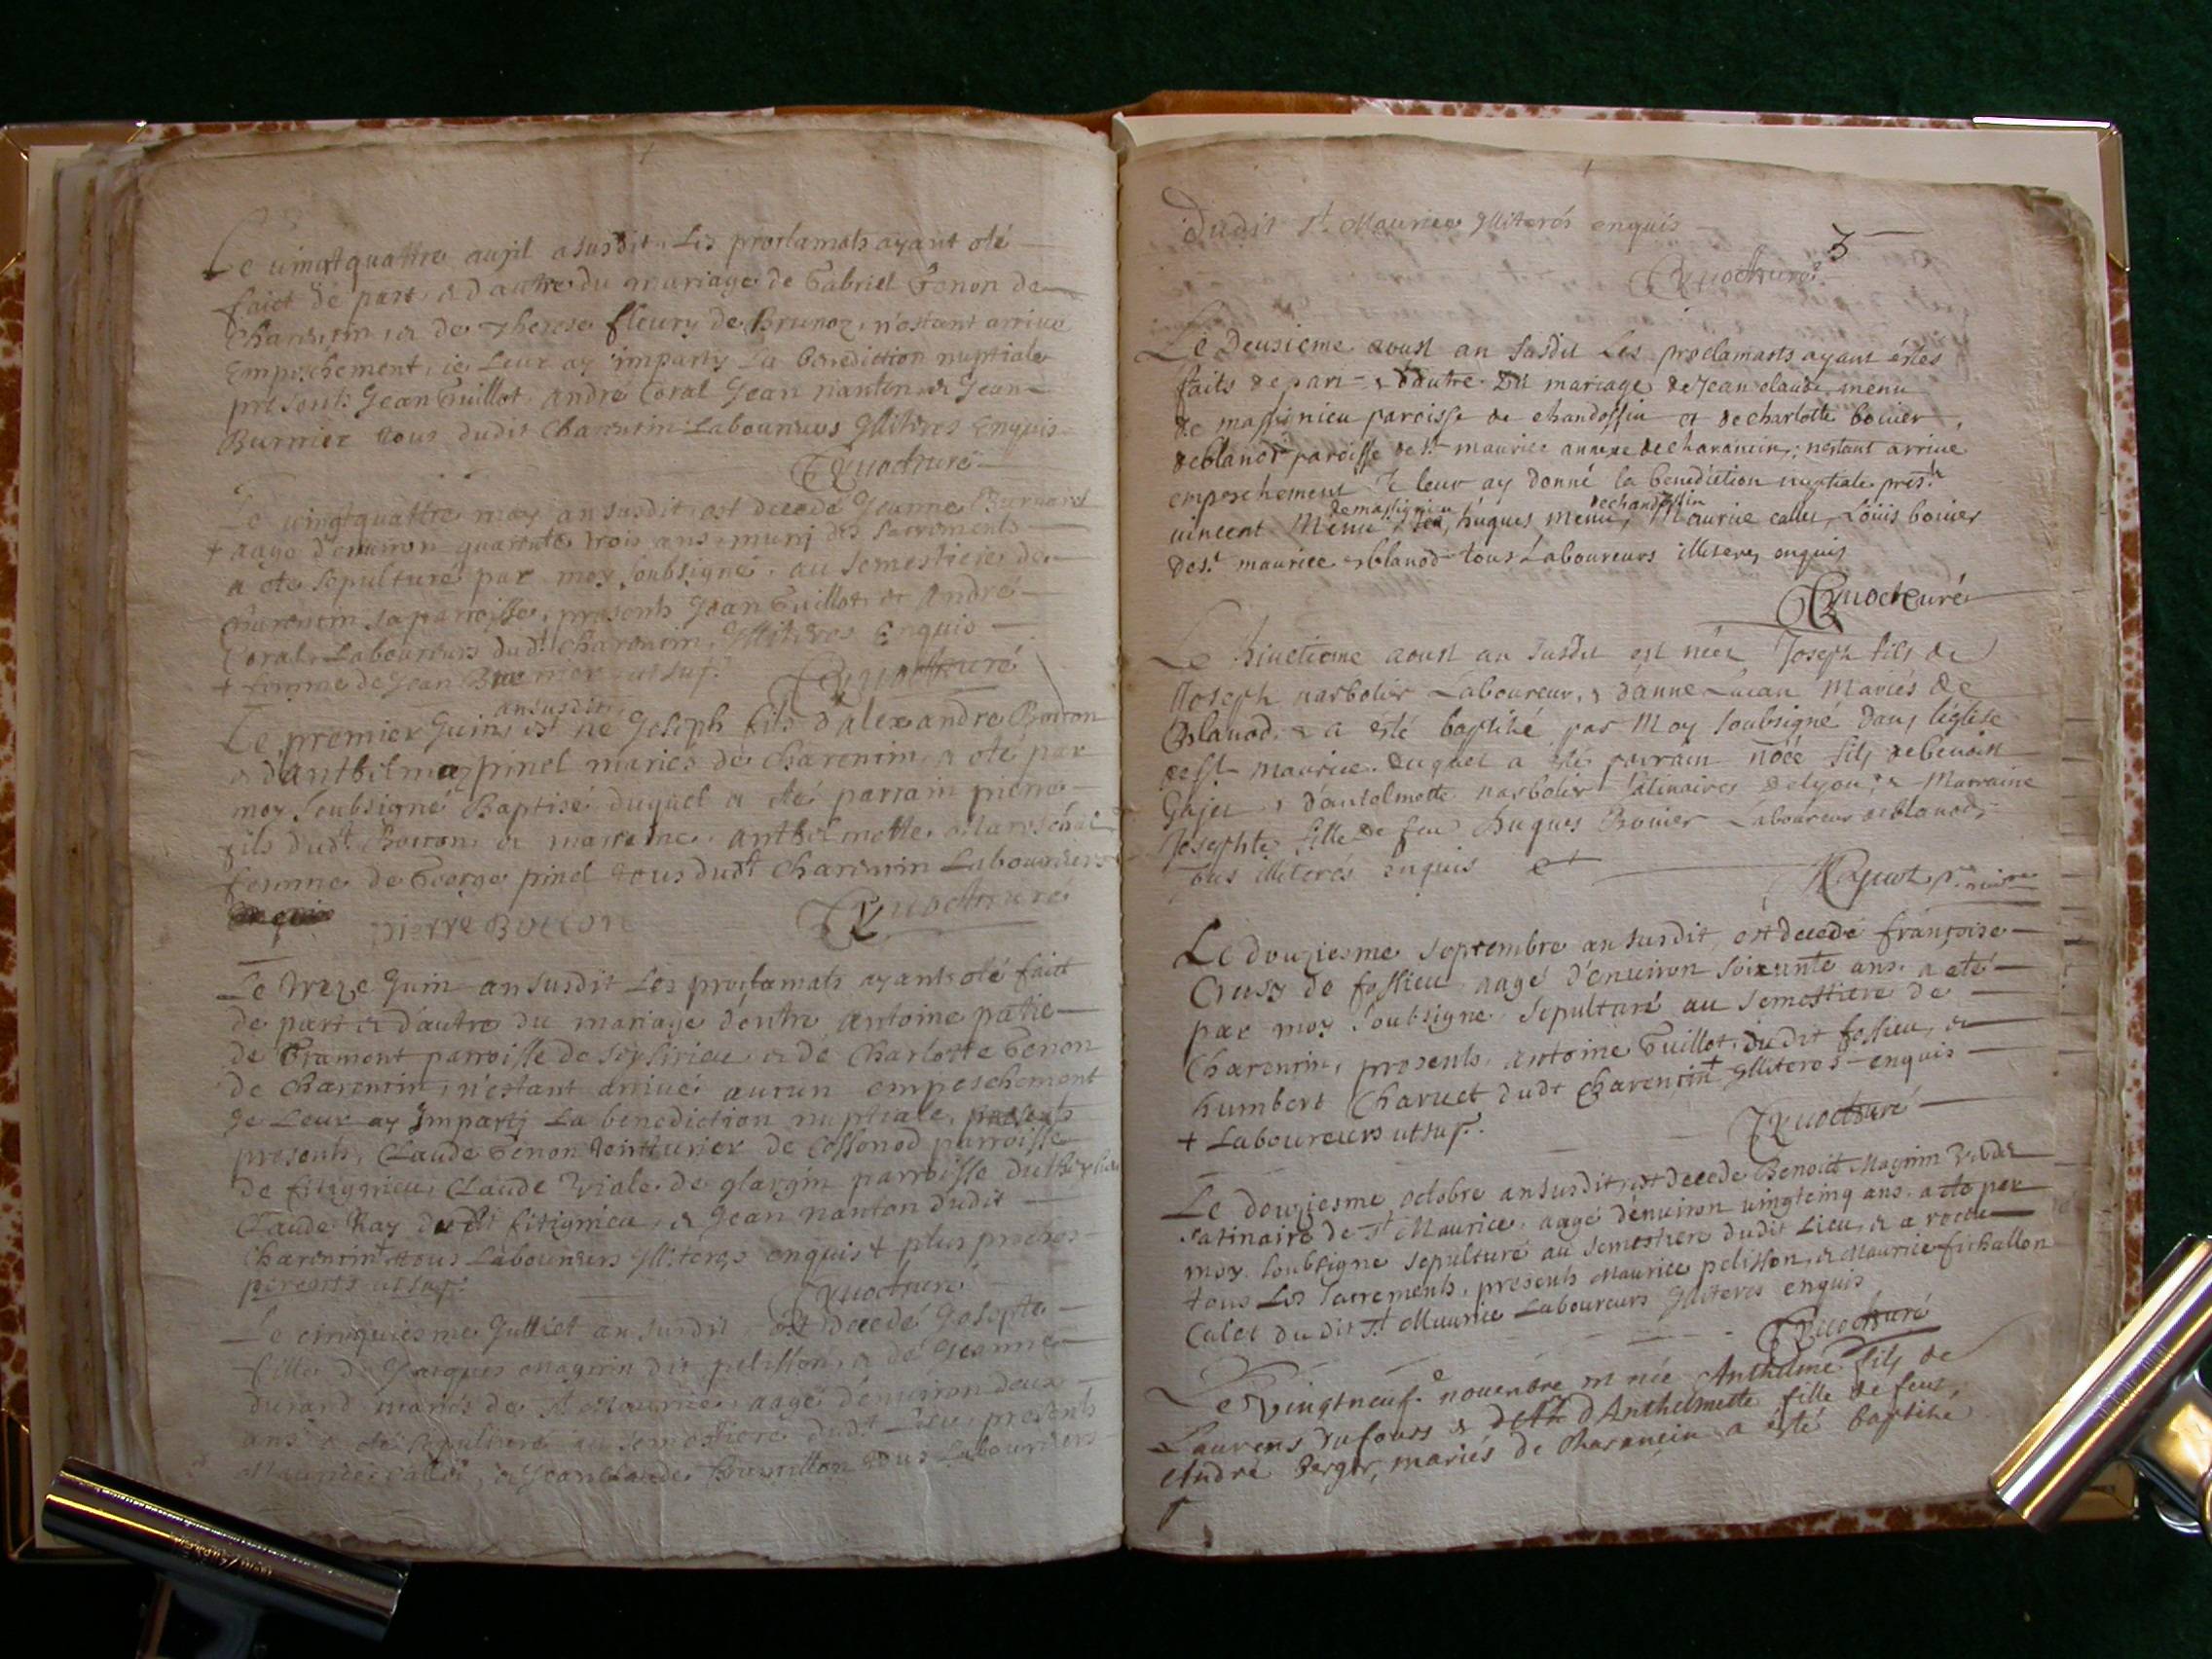 Le vingtquattre auril a susdit. Les proclamats ayant oté
faict de part, & d'autre du mariage de Gabriel Genon de
Charentin, & de Therese fleury de Brunoz, n'estant arriué
Empeschement, ie Leur ay imparty La Benediction nuptiale
presents Jean Guillot. André Coral Jean nanton & Jean
Burnier tous dudit Charentin Laboureurs Jlliteres Enquis
Le vingtquattre may an susdit est decedé Jeanne
+ aagé d'enuiron quarante trois ans munj des Sacrements
a eté sepulturé par moy soubsigné, au semestiere de
Charentin sa parroisse, presents Jean Guillot & André
Coral, Laboureurs dudt Charentin. Jlliteres Enquis
+ femme de Jean ut sup.
an susdit
Le premier Juin est né Joseph fils d'alexandre Boccon
& d'anthelma pinel mariés de Charentin, a eté par
moy soubsigné Baptisé duquel a eté parrain pierre
fils dudt Boccon, & marraine anthelmette Mareschal
femme de George pinel tous dudt Charentin Laboureurs
pierre Boccon
Le treze Juin an susdit Les proclamats ayants oté faict
de part & d'autre du mariage d'entre antoine patie
de Gramont parroisse de & de Charlotte Genon
de Charentin, n'estant arriué aucun empeschement
Je Leur ay Jmpartj La benediction nuptiale, presents
presents, Claude Genon de Cossonod parroisse
de fitignieu, Claude Viale de glargin parroisse
Claude Ray dudit fitignieu, & Jean nanton dudit
Charentin tous Laboureurs Jlliteres enquis + plus proches
parents ut sup.
Le cinquiesme Julliet an susdit est decedé Josepte
fille de Jacques Magnin dit pelisson, & de Jeanne
durand mariés de St Maurice, aagé d'enuiron deux
ans a eté sepulturé au semestiere dudt Lieu, presents
Maurice Callet, & Jean Claude tous Laboureurs
Dudit St Maurice Jlliterés enquis
3
Le Deusieme aoust an susdit Les proclamasts ayant estés
faits de part & d'autre du mariage de Jean claude menu
de massignieu paroisse de chandossin et de charlotte bouier
de blanod paroisse de St maurice annexe de charancin; nestant arriué
empeschement Je leur ay donné la benediction nuptiale prests
de massignieu de chandossin
vincent Menu, hugues menu, Maurice callet, Loüis bouier
de St maurice & blanod tous Laboureurs illiteres enquis
Le huictieme aoust an susdit est nééz Joseph fils de
Joseph narbolier Laboureur, & d'anne Lucan Mariés de
Blanod, & a esté baptisé par Moy soubsigné dans l'église
de St maurice. duquel a été parrain nöéé fils de benoist
Gojet, & d'antelmette narbolier satinaires de lyon; & Marraine
Josephte fille de feu hugues Bouier Laboureur de blanod;
Tous illiterés enquis
Le douziesme septembre an susdit, est decedé françoise
Crusy de fossieu, aagé d'enuiron soixante ans. a eté
par moy soubsigné sepulturé au semestiere de
Charentin, presents, antoine Guillot, du dit fossieu, &
humbert Charuet dudt Charentin + Jlliteres enquis
+ Laboureurs ut sup.
Le douziesme octobre an susdit, est decede Benoict Magnin
satinaire de St Maurice, aagé d'enuiron vingtcinq ans. a eté par
moy soubsigne sepulturé au semestiere dudit Lieu, & a
tous Les sacrements, presents Maurice pelisson, & Maurice fichallon
Calet du dit St Maurice Laboureurs Jlliteres enquis
Le Vingtneufe nouembre est née Anthelme fils de
Laurens dufours & d'Anthelmette fille de feut
André Berger, mariés de charancin a esté baptisé